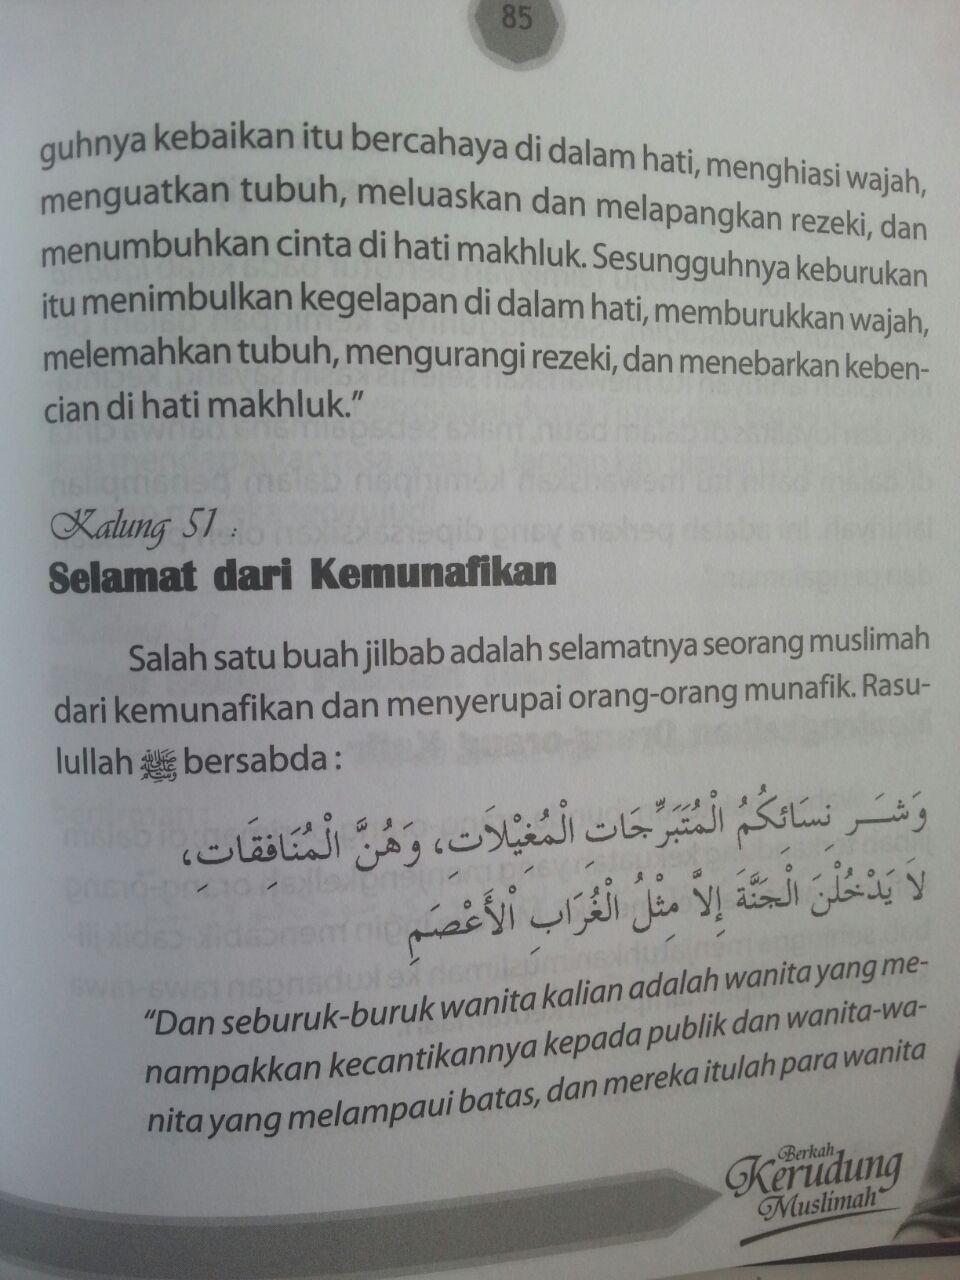 85
guhnya kebaikan itu bercahaya di dalam hati, menghiasi wajah,
menguatkan tubuh, meluaskan dan melapangkan rezeki, dan
menumbuhkan cinta di hati makhluk. Sesungguhnya keburukan
itu menimbulkan kegelapan di dalam hati, memburukkan wajah,
melemahkan tubuh, mengurangi rezeki, dan menebarkan keben-
cian di hati makhluk.”
Kalung 51 :
Selamat dari Kemunafikan
Salah satu buah jilbab adalah selamatnya seorang muslimah
dari kemunafikan dan menyerupai orang-orang munafik. Rasu-
lullah ﷺ bersabda :
وَشَــرَ نِسَائِكُمُ الْمُتَبَرِّجَات الْمُغِيْلَاتِ، وَهُنَّ الْمُنَافِقَاتِ،
لَا يَدْخُلْنَ الْجَنَّةَ إِلاَّ مِثْلُ الْغُرَابِ الْأَعْصَمِ
“Dan seburuk-buruk wanita kalian adalah wanita yang me-
nampakkan kecantikannya kepada publik dan wanita-wa-
nita yang melampaui batas, dan mereka itulah para wanita
Berkah
Kerudung
Muslimah